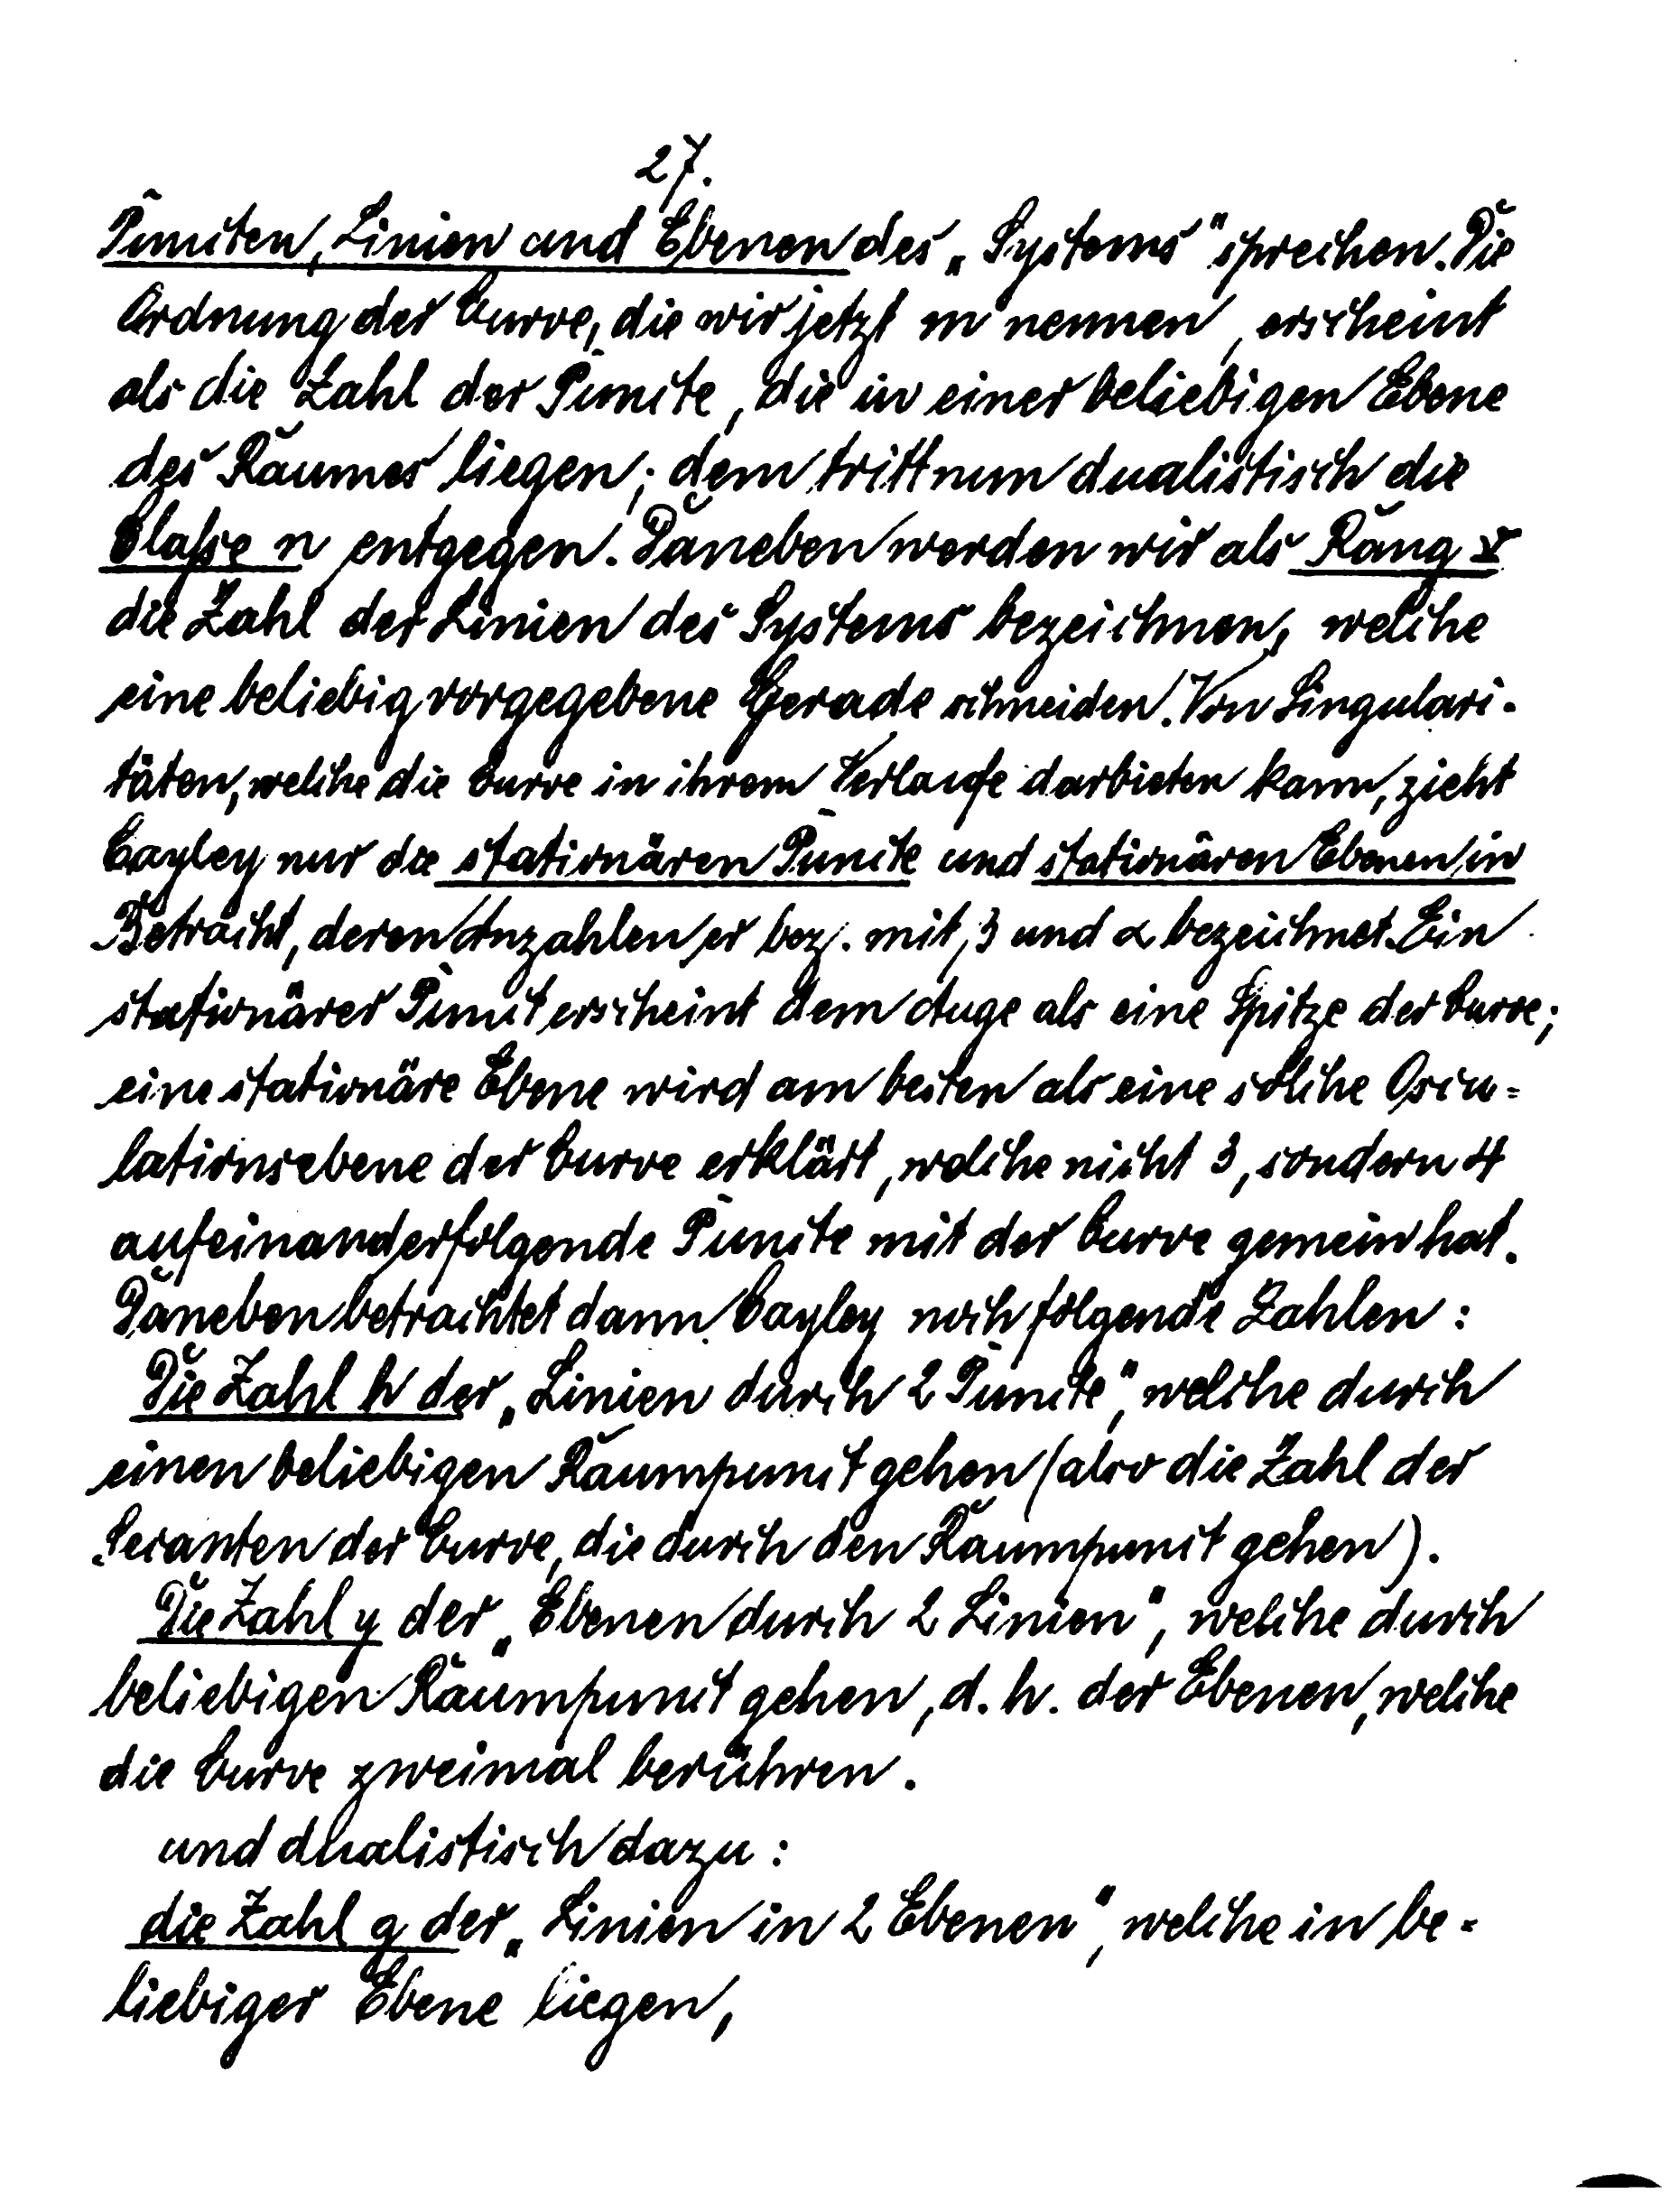 27.
Puncten, Linien und Ebenen des „Systems" sprechen. Die
Ordnung der Curve, die wir jetzt m nennen, erscheint
als die Zahl der Puncte, die in einer beliebigen Ebene
des Raumes liegen; dem tritt nun dualistisch die
Classe n entgegen. Daneben werden wir als Rang r
die Zahl der Linien des Systems bezeichnen, welche
eine beliebig vorgegebene Gerade schneiden. Von Singulari-
täten, welche die Curve in ihrem Verlaufe darbieten kann, zieht
Cayley nur die stationären Puncte und stationären Ebenen in
Betracht, deren Anzahlen er bez. mit β und α bezeichnet. Ein
stationärer Punct erscheint dem Auge als eine Spitze der Curve;
eine stationäre Ebene wird am besten als eine solche Oscu-
lationsebene der Curve erklärt, welche nicht 3, sondern 4
aufeinanderfolgende Puncte mit der Curve gemein hat.
Daneben betrachtet dann Cayley noch folgende Zahlen:
Die Zahl h der „Linien durch 2 Puncte", welche durch
einen beliebigen Raumpunct gehen (also die Zahl der
Secanten der Curve, die durch den Raumpunct gehen).
Die Zahl y der „Ebenen durch 2 Linien", welche durch
beliebigen Raumpunct gehen, d. h. der Ebenen, welche
die Curve zweimal berühren.
und dualistisch dazu:
die Zahl g der „Linien in 2 Ebenen", welche in be-
liebiger Ebene liegen,